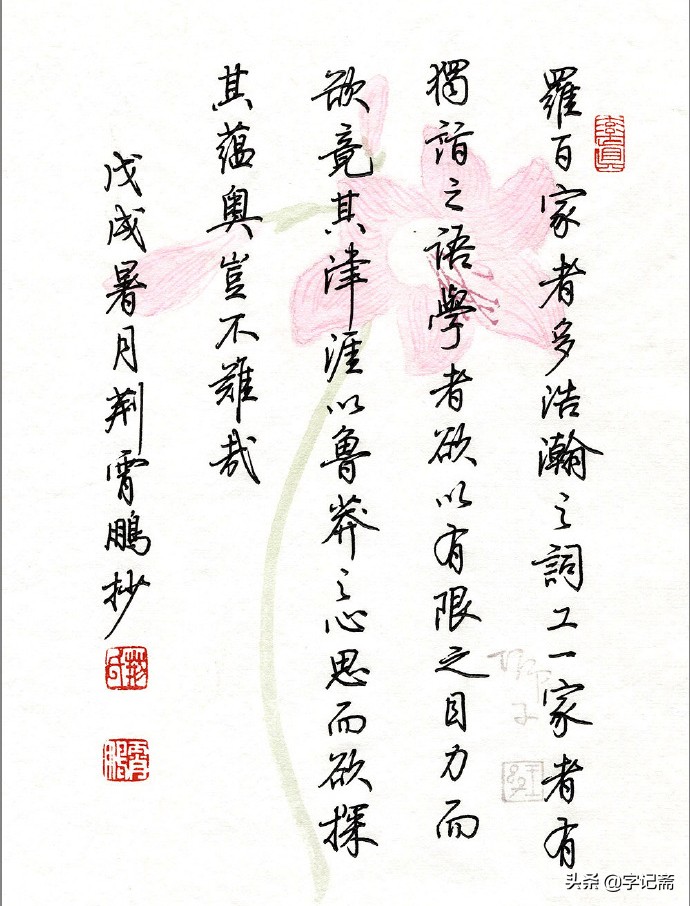 羅百家者多浩瀚之詞工一家者有
獨詣之語學者欲以有限之目力而
欲竟其津涯以魯莽之心思而欲探
其蘊奥豈不難哉
戊戌暑月荆霄鵬抄
头条 @字记斋